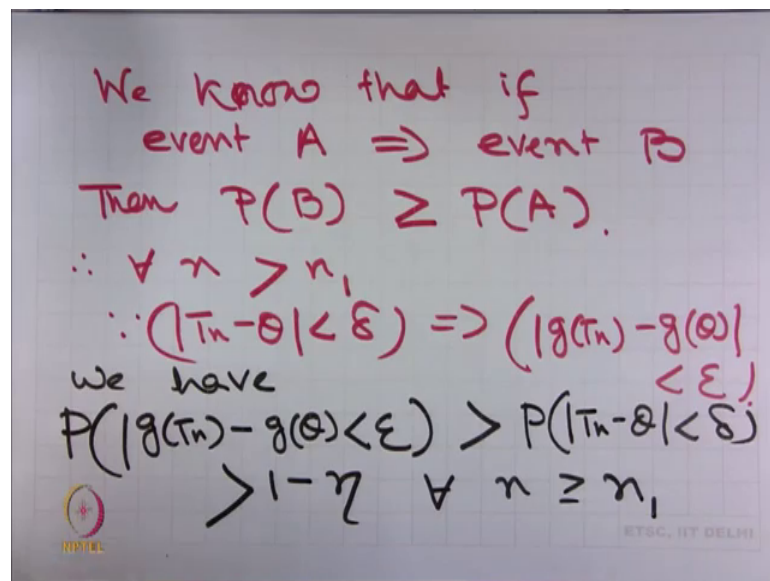 We know that if
event A => event B
Then P(B) ≥ P(A).
∴ ∀ n > n₁
∵ (|Tn-θ| < δ) => (|g(Tn) - g(θ)|
< ε)
we have
P(|g(Tn) - g(θ) < ε) > P(|Tn-θ| < δ)
> 1 - η ∀ n ≥ n₁
NPTEL
ETSC, IIT DELHI